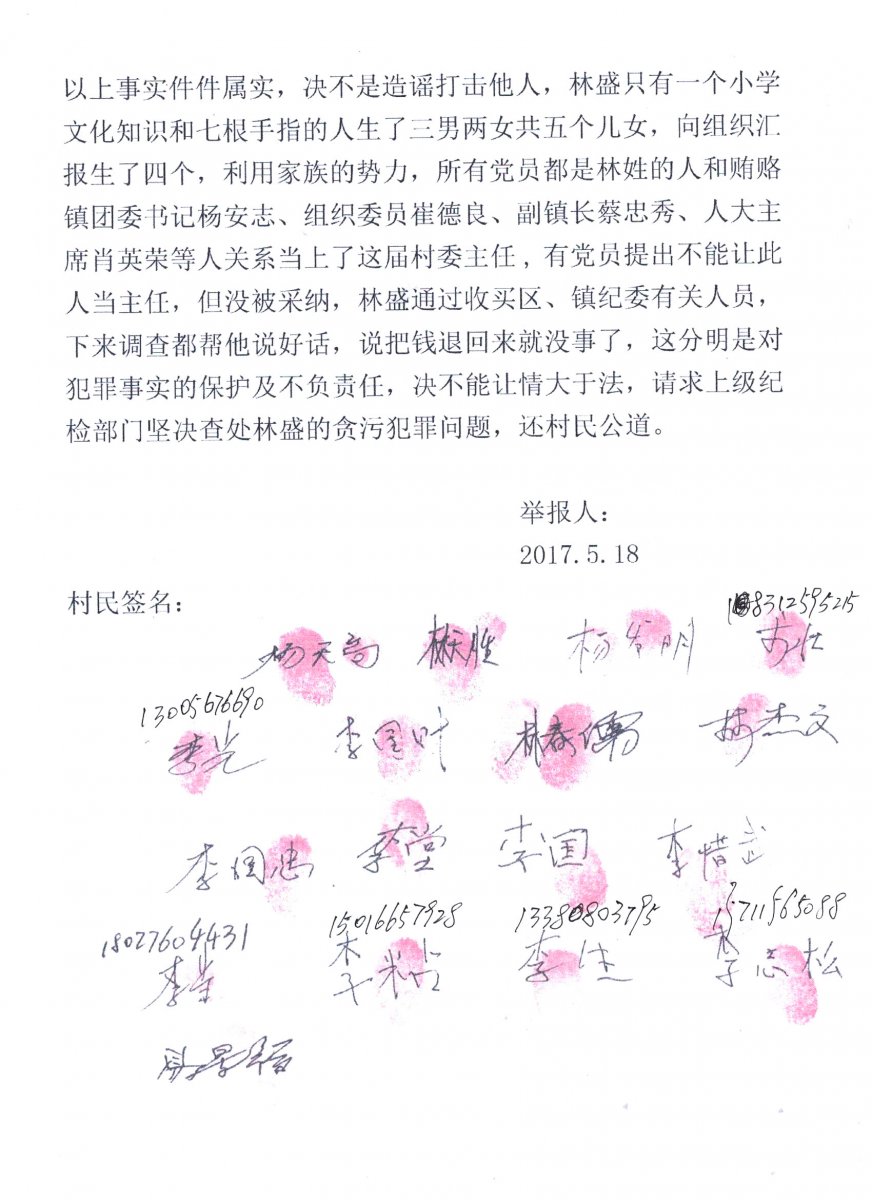 以上事实件件属实，决不是造谣打击他人，林盛只有一个小学
文化知识和七根手指的人生了三男两女共五个儿女，向组织汇
报生了四个，利用家族的势力，所有党员都是林姓的人和贿赂
镇团委书记杨安志、组织委员崔德良、副镇长蔡忠秀、人大主
席肖英荣等人关系当上了这届村委主任，有党员提出不能让此
人当主任，但没被采纳，林盛通过收买区、镇纪委有关人员，
下来调查都帮他说好话，说把钱退回来就没事了，这分明是对
犯罪事实的保护及不负责任，决不能让情大于法，请求上级纪
检部门坚决查处林盛的贪污犯罪问题，还村民公道。
举报人：
2017.5.18
村民签名：
杨天高 杨发明
13005676690
李国叶 林杰文
李国忠 李堂 李国 李惜武
18027604431 15016657928 13380803795 15711565088
李志松